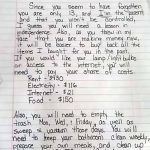 Since you seem to have forgotten
you are only 13, and I'm the parent
And that you won't be controlled,
I guess you will need a lesson in
independence. Also, as you threw in my
face that you are making money now,
it will be easier to buy back all the
items I bought for you in the past.
If you would like your lamp/lightbulbs
or access to the internet, you will
need to pay your share of costs.
Rent - $430
Electricity - $116
Internet - $21
Food - $150
Also, you will need to empty the
trash Mon, Wed, & Friday, as well as
sweep & vacuum those days. You will
need to keep your bathroom clean weekly,
prepare your own meals, and clean up